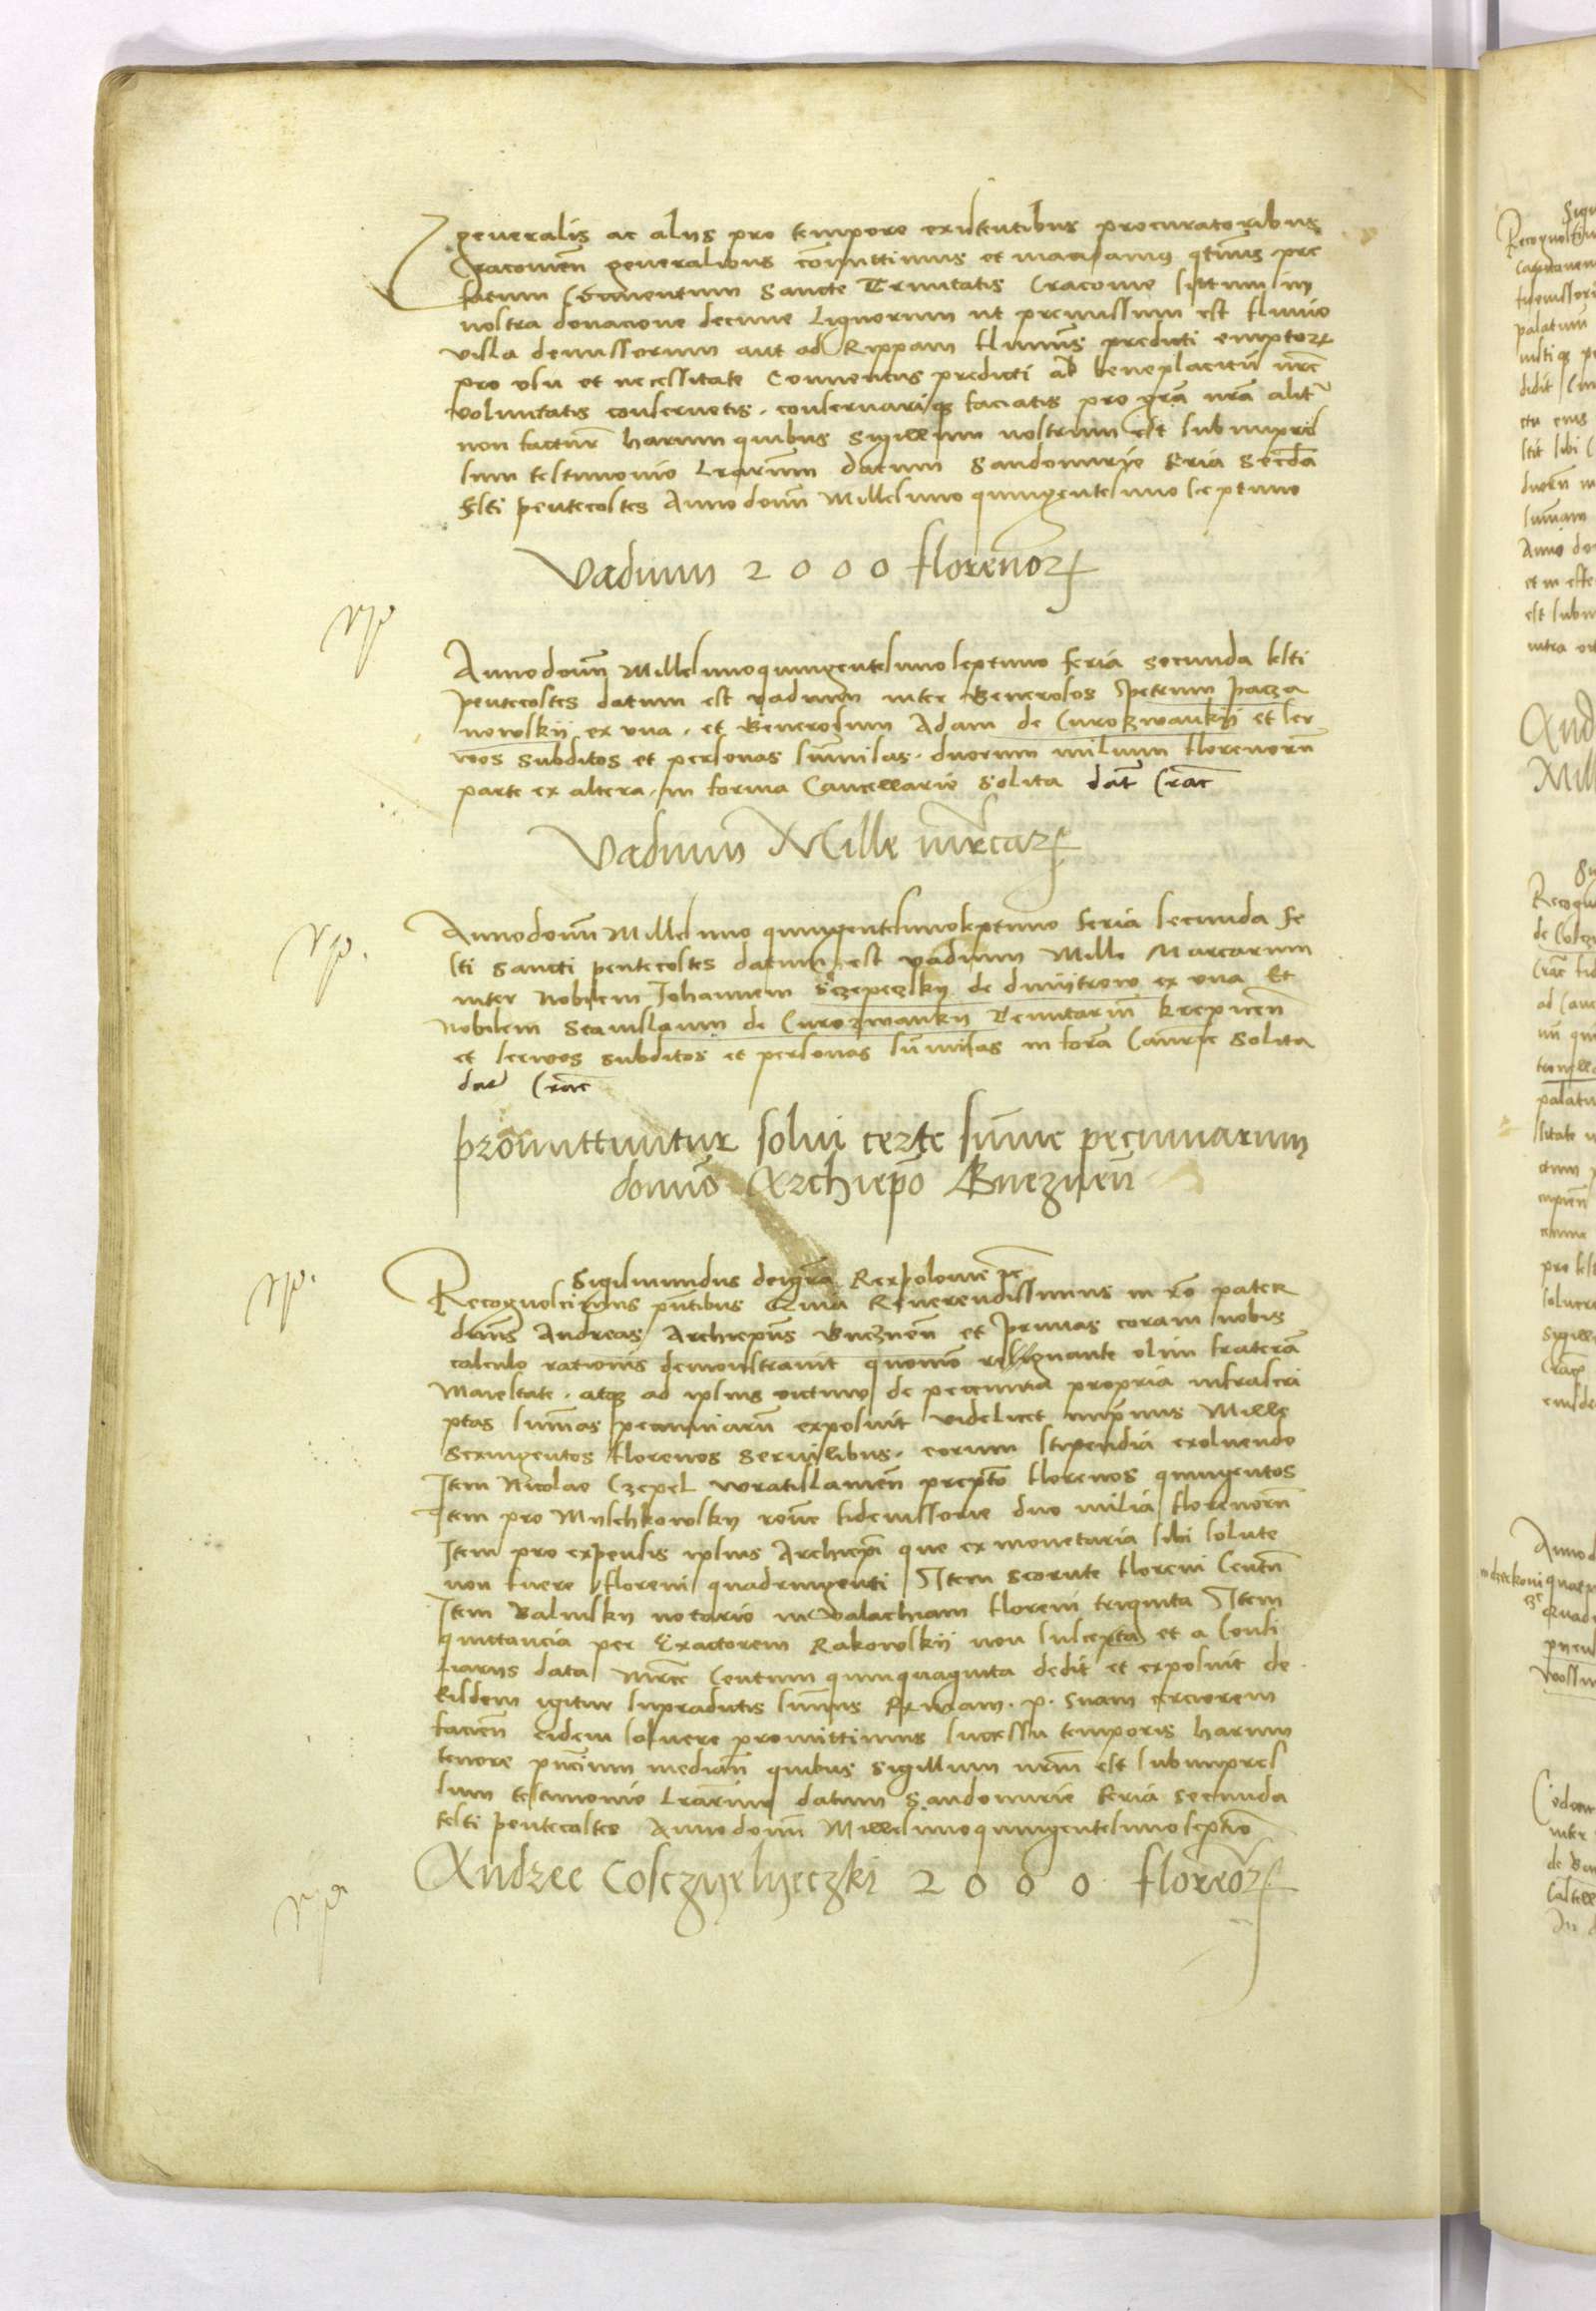 generalis ac alijs pro tempore existentibus procuratoribus
Cracovien̄ generalibus com̄ittimus et mandamus q̄tinus pre
fatum Conventum Sancte Trinitatis Cracovie situm in
nostra donacione decime lignorum ut premissum est fluvio
visla demissorum aut ad Rippam fluminis predicti emptoꝝ
pro usu et necessitate Conventus predicti ad beneplacitū nr̄e
voluntatis conservetis. conservariqꝫ faciatis pro grā nr̄a alit̄
non factur̄ harum quibus sigillum nostrum est subimpres
sum testimonio lrārum datum Sandomirie feria secda
festi penthecostes Anno domī Millesimo quingentesimo septimo
Vadium 2000 florenoꝝ
Anno domī Millesimo quingentesimo septimo feria secunda festi
penthecostes datum est vadium inter Generosos petrum pacza
nowskij ex una. et Generosum Adam de Curozwankij et ser
vos subditos et personas sum̄issas. duorum milium florenorū
parte ex altera. in forma Cancellarie solita dat̄ Crac̄
Vadium Mille mr̄caꝝ
Anno domī Millesimo quingentesimo septimo feria secunda fe
sti sancti penthecostes datum est vadium Mille Marcarum
inter Nobilem Johannem Sczepeczsky de dmijtrow ex una Et
Nobilem Stanislaum de Curozwanky Tenutariū krepicen̄
et servos subditos et personas sum̄issas in forā Canr̄ie solita
dat̄ Crac̄
promittuntur solvi certe sum̄e pecuniarum
domīo Archiepō Gneznen̄
Sigismundus dei grā Rex polonie ꝛc
Recognoscimus pn̄tibus Quia Reverendissimus in xo pater
dn̄us Andreas Archiepūs Gneznen̄ et primas coram nobis
calculo rationis demonstravit quomō resignante olim fraterā
Maiestate. atqꝫ ad ipsius victum de pecunia propria infrascri
ptas sum̄as pecuniarū exposuit videlicet imprimis Mille
Sexingentos florenos servilibus. eorum stipendia exolvendo
Item Nicolao Czepel wratislavien̄ prepto florenos quingentos
Item pro Myschkowsky roñe fideiussorie duo milia florenorū
Item pro expensis ipsius Archiepī que ex monetaria sibi solute
non fuere floreni quadringenti Item scorute floreni Centū
Item Balinsky notario in valachiam floreni triginta Item
quittancia per Exactorem Rakowskij non suscepta et a Consi
liarijs data Mr̄ce Centum quinquaginta dedit et exposuit de
Eisdem igitur supradictis sum̄is Rx̄mam. p. suam cerciorem
facien̄ eidem solvere promittimus successu temporis harum
tenore pn̄cium median̄ quibus sigillum nr̄m est subimpres
sum testimonio lrārum datum Sandomirie feria secunda
festi penthecostes Anno domī Millesimo quingentesimo septīo
Andree Cosczyelyeczki 2000 florēoꝝ